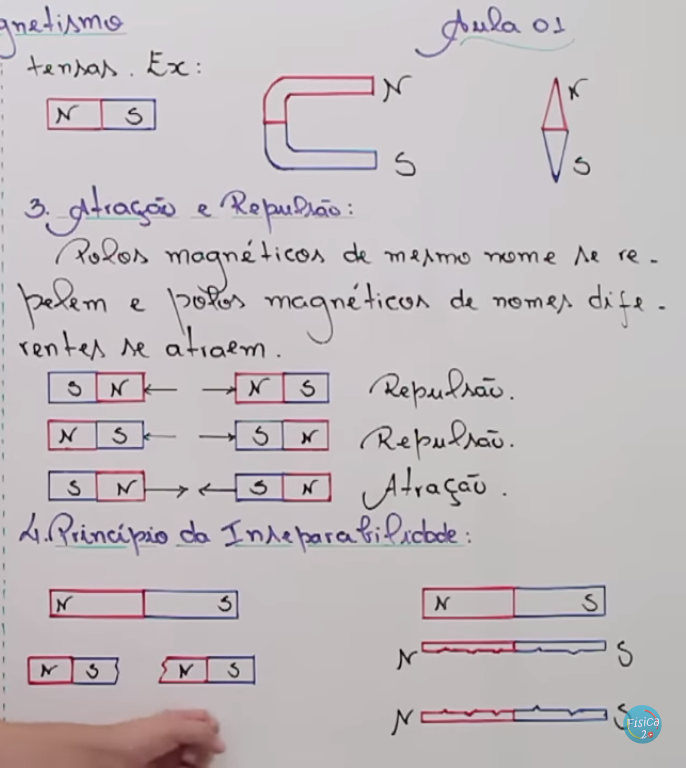 gnetismo
Aula 01
tensas. Ex:
N S
N
S
N
S
3. Atração e Repulsão:
Polos magnéticos de mesmo nome se re-
pelem e polos magnéticos de nomes dife-
rentes se atraem.
S N N S Repulsão.
N S S N Repulsão.
S N S N Atração.
4. Princípio da Inseparabilidade:
N S
N S
N S N S
N S
N S
Física
2